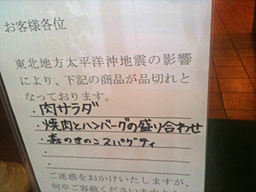 お客様各位
東北地方太平洋沖地震の影響
により、下記の商品が品切れと
なっております。
・肉サラダ
・焼肉とハンバーグの盛り合わせ
・森のきのこスパゲティ
・
・
ご迷惑をおかけいたしますが、
何卒ご容赦くださいますよう